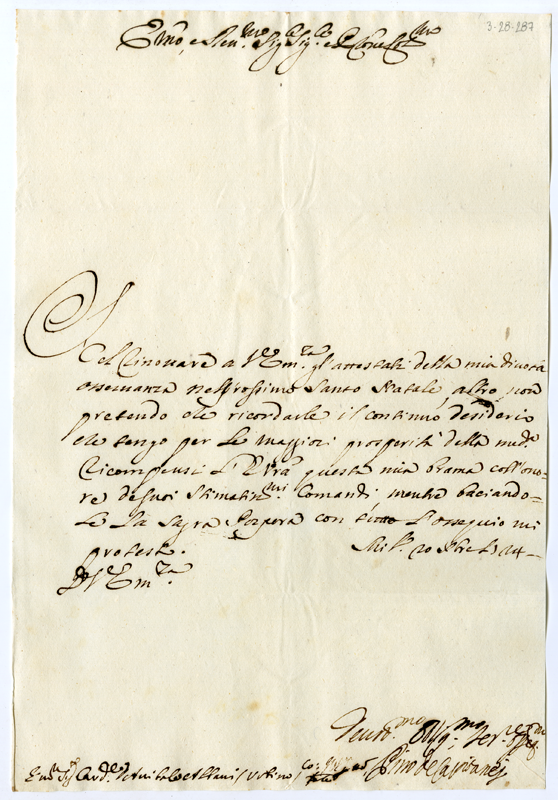 3-28-287
Em̃o, e Reu.mo Sig.r Sig.r e Pr̃one Col.mo
Nel rinouare a V. Em.za gl'attestati della mia diuota
osseruanza nel prossimo Santo Natale, altro non
pretendo che ricordarle il continuo desiderio
che tengo per le maggiori prosperità della med.a
Ricompensi l'E Vrã questa mia brama coll'ono-
re de suoi stimatis.mi Comandi mentre baciando-
le la Sagra Porpora con tutto l'ossequio mi
protesto.
Mil.o 20 Xbre
D V. Em.za
Deuot.mo Oblig.mo Ser.re
Em. Sig. Card.e Albani Urbino